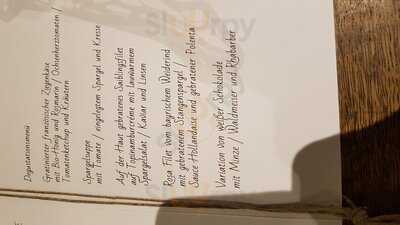 Degustationsmenü
Gratinierter französischer Ziegenkäse
mit Bio-Honig und Rosmarin / Ochsenherztomaten /
Tomatenketchup und Kräutern
Spargelsuppe
mit Tomate / eingelegtem Spargel und Kresse
Auf der Haut gebratenes Saiblingsfilet
auf Topinamburcrème mit lauwarmem
Spargelsalat / Kaviar und Linsen
Rosa Filet vom bayrischem Weiderind
mit gebratenem Stangenspargel /
Sauce Hollandaise und gebratener Polenta
Variation von weißer Schokolade
mit Minze / Waldmeister und Rhabarber